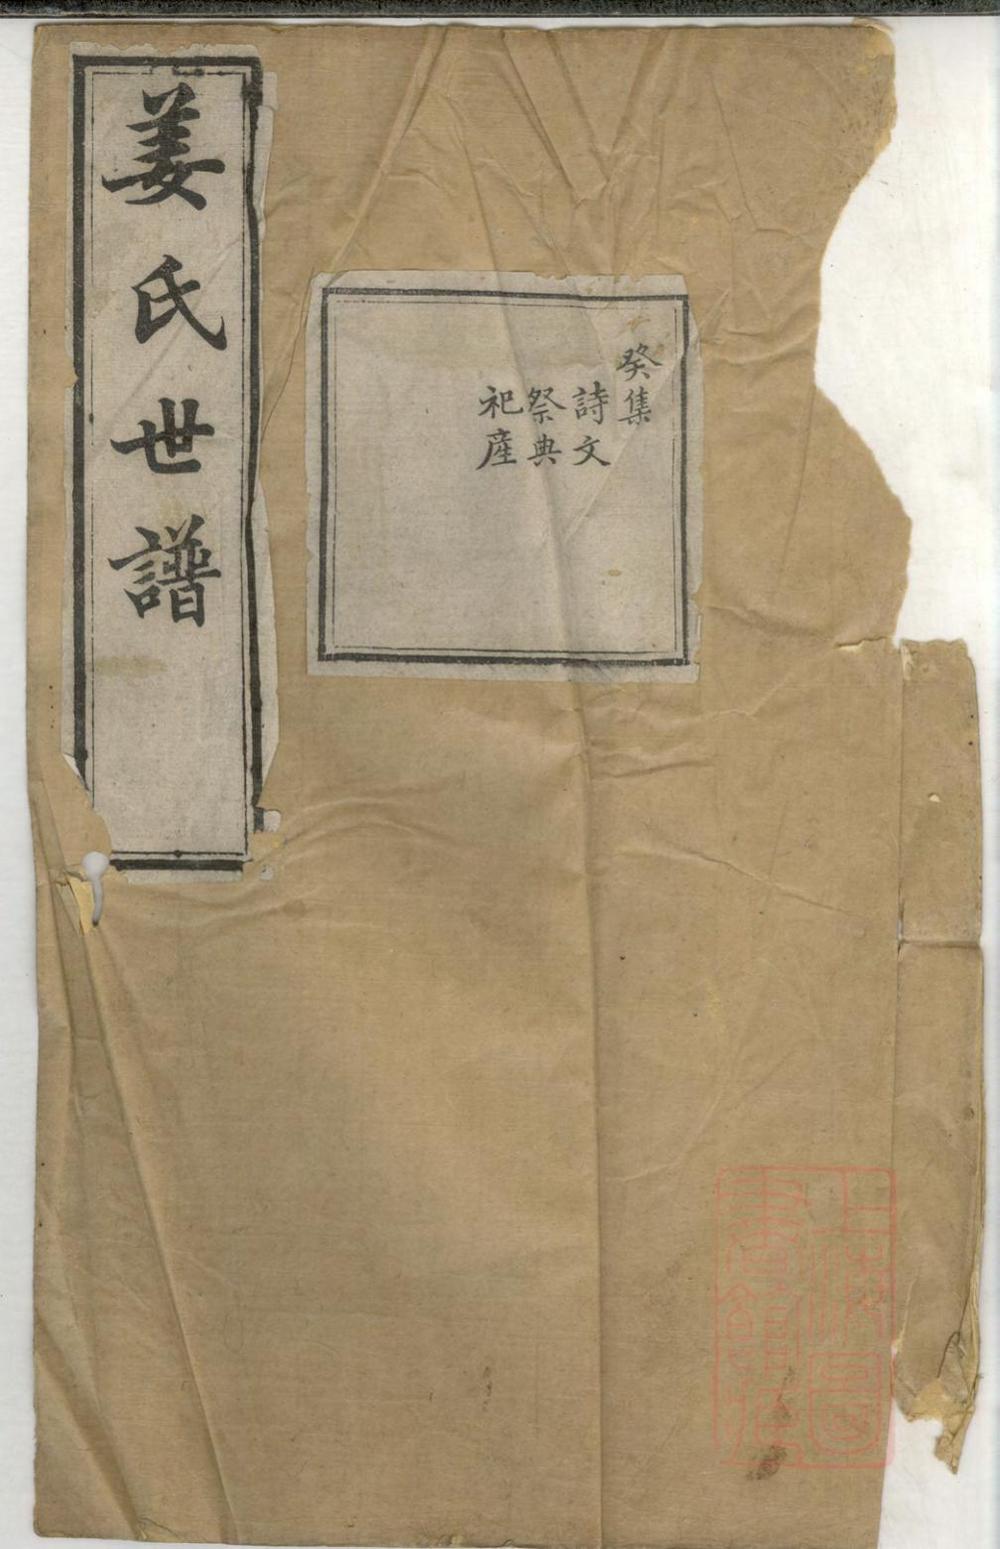 姜氏世譜
癸集
詩文
祭典
祀産
上海圖
書館藏